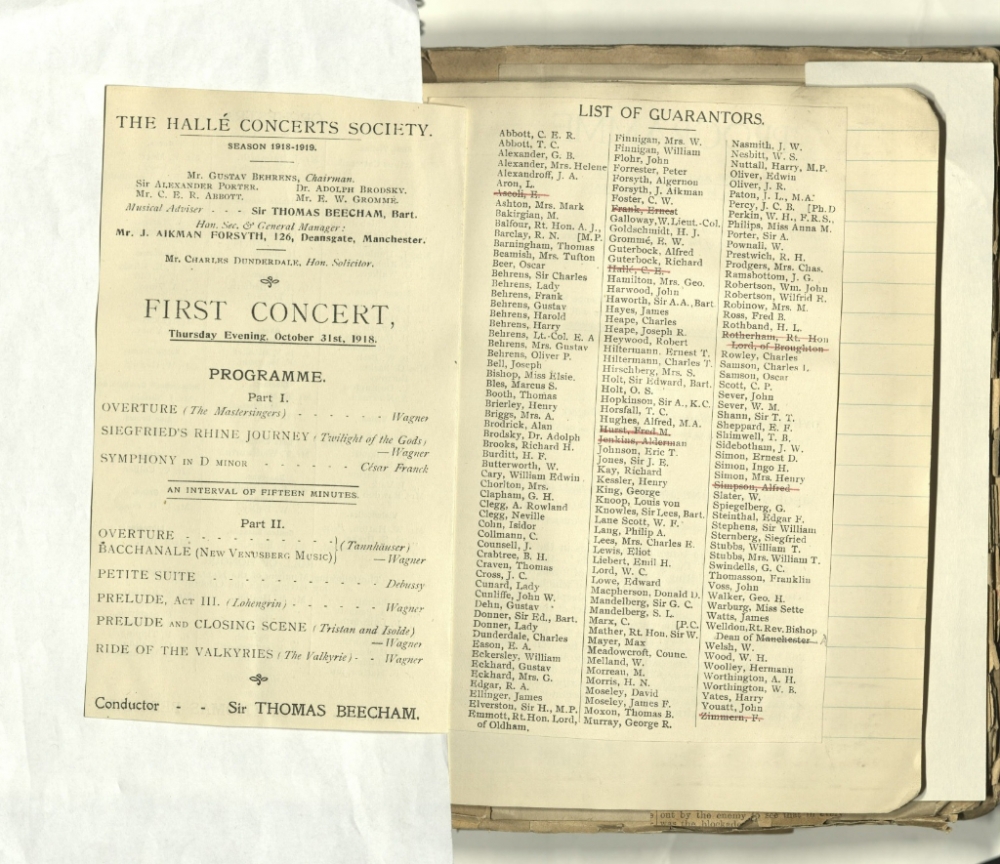 THE HALLÉ CONCERTS SOCIETY.
SEASON 1918-1919.
Mr. GUSTAV BEHRENS, Chairman.
Sir ALEXANDER PORTER. Dr. ADOLPH BRODSKY.
Mr. C. E. R. ABBOTT. Mr. E. W. GROMMÉ.
Musical Adviser - - - Sir THOMAS BEECHAM, Bart.
Hon. Sec. & General Manager:
Mr. J. AIKMAN FORSYTH, 126, Deansgate, Manchester.
Mr. CHARLES DUNDERDALE, Hon. Solicitor.
FIRST CONCERT,
Thursday Evening, October 31st, 1918.
PROGRAMME.
Part I.
OVERTURE (The Mastersingers) - - - - - - Wagner
SIEGFRIED'S RHINE JOURNEY (Twilight of the Gods)
—Wagner
SYMPHONY IN D MINOR - - - - - - César Franck
AN INTERVAL OF FIFTEEN MINUTES.
Part II.
OVERTURE - - - - - - - - -
BACCHANALE (NEW VENUSBERG MUSIC) } (Tannhäuser)
—Wagner
PETITE SUITE - - - - - - - - - - - Debussy
PRELUDE, ACT III. (Lohengrin) - - - - - - Wagner
PRELUDE AND CLOSING SCENE (Tristan and Isolde)
—Wagner
RIDE OF THE VALKYRIES (The Valkyrie) - - Wagner
Conductor - - Sir THOMAS BEECHAM.
LIST OF GUARANTORS.
Abbott, C. E. R.
Abbott, T. C.
Alexander, G. B.
Alexander, Mrs. Helene
Alexandroff, J. A.
Aron, L.
Ascoli, E.
Ashton, Mrs. Mark
Bakirgian, M.
Balfour, Rt. Hon. A. J.,
Barclay, R. N. [M.P.
Barningham, Thomas
Beamish, Mrs. Tufton
Beer, Oscar
Behrens, Sir Charles
Behrens, Lady
Behrens, Frank
Behrens, Gustav
Behrens, Harold
Behrens, Harry
Behrens, Lt.-Col. E. A
Behrens, Mrs. Gustav
Behrens, Oliver P.
Bell, Joseph
Bishop, Miss Elsie.
Bles, Marcus S.
Booth, Thomas
Brierley, Henry
Briggs, Mrs. A.
Brodrick, Alan
Brodsky, Dr. Adolph
Brooks, Richard H.
Burditt, H. F.
Butterworth, W.
Cary, William Edwin
Chorlton, Mrs.
Clapham, G. H.
Clegg, A. Rowland
Clegg, Neville
Cohn, Isidor
Collmann, C.
Counsell, J.
Crabtree, B. H.
Craven, Thomas
Cross, J. C.
Cunard, Lady
Cunliffe, John W.
Dehn, Gustav
Donner, Sir Ed., Bart.
Donner, Lady
Dunderdale, Charles
Eason, E. A.
Eckersley, William
Eckhard, Gustav
Eckhard, Mrs. G.
Edgar, R. A.
Ellinger, James
Elverston, Sir H., M.P.
Emmott, Rt. Hon. Lord,
of Oldham,
Finnigan, Mrs. W.
Finnigan, William
Flohr, John
Forrester, Peter
Forsyth, Algernon
Forsyth, J. Aikman
Foster, C. W.
Frank, Ernest
Galloway, W. Lieut.-Col.
Goldschmidt, H. J.
Grommé, E. W.
Guterbock, Alfred
Guterbock, Richard
Hallé, C. E.
Hamilton, Mrs. Geo.
Harwood, John
Haworth, Sir A. A., Bart
Hayes, James
Heape, Charles
Heape, Joseph R.
Heywood, Robert
Hiltermann, Ernest T.
Hiltermann, Charles T.
Hirschberg, Mrs. S.
Holt, Sir Edward, Bart.
Holt, O. S.
Hopkinson, Sir A., K.C.
Horsfall, T. C.
Hughes, Alfred, M.A.
Hurst, Fred M.
Jenkins, Alderman
Johnson, Eric T.
Jones, Sir J. E.
Kay, Richard
Kessler, Henry
King, George
Knoop, Louis von
Knowles, Sir Lees, Bart.
Lane Scott, W. F.
Lang, Philip A.
Lees, Mrs. Charles E.
Lewis, Eliot
Liebert, Emil H.
Lord, W. C.
Lowe, Edward
Macpherson, Donald D.
Mandelberg, Sir G. C.
Mandelberg, S. L.
Marx, C. [P.C.
Mather, Rt. Hon. Sir W.
Mayer, Max
Meadowcroft, Counc.
Melland, W.
Morreau, M.
Morris, H. N.
Moseley, David
Moseley, James F.
Moxon, Thomas B.
Murray, George R.
Nasmith, J. W.
Nesbitt, W. S.
Nuttall, Harry, M.P.
Oliver, Edwin
Oliver, J. R.
Paton, J. L., M.A.
Percy, J. C. B. [Ph.D
Perkin, W. H., F.R.S.,
Philips, Miss Anna M.
Porter, Sir A.
Pownall, W.
Prestwich, R. H.
Prodgers, Mrs. Chas.
Ramsbottom, J. G.
Robertson, Wm. John
Robertson, Wilfrid E.
Robinow, Mrs. M.
Ross, Fred B.
Rothband, H. L.
Rotherham, Rt. Hon
Lord, of Broughton
Rowley, Charles
Samson, Charles L.
Samson, Oscar
Scott, C. P.
Sever, John
Sever, W. M.
Shann, Sir T. T.
Sheppard, E. F.
Shimwell, T. B.
Sidebotham, J. W.
Simon, Ernest D.
Simon, Ingo H.
Simon, Mrs. Henry
Simpson, Alfred
Slater, W.
Spiegelberg, G.
Steinthal, Edgar F.
Stephens, Sir William
Sternberg, Siegfried
Stubbs, William T.
Stubbs, Mrs. William T.
Swindells, G. C.
Thomasson, Franklin
Voss, John
Walker, Geo. H.
Warburg, Miss Sette
Watts, James
Welldon, Rt. Rev. Bishop
Dean of Manchester
Welsh, W.
Wood, W. H.
Woolley, Hermann
Worthington, A. H.
Worthington, W. B.
Yates, Harry
Youatt, John
Zimmern, F.
out by the enemy to see that
was the blockade